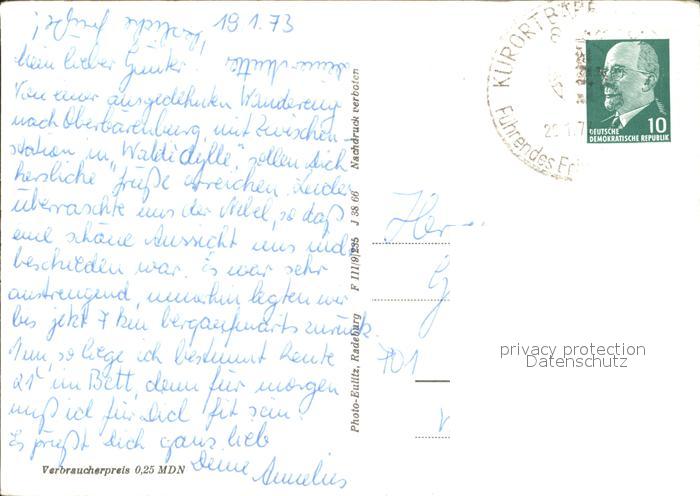 19.1.73
Mein lieber Günter!
Von einer ausgedehnten Wanderung
nach Oberbärenburg, mit Zwischen-
station in "Waldidylle", sollen Dich
herzliche Grüße erreichen. Leider
überraschte uns der Nebel, so daß
eine schöne Aussicht uns nicht
beschieden war. Es war sehr
anstrengend, immerhin legten wir
bis jetzt 7 km bergaufwärts zurück.
Nun, so liege ich bestimmt heute
21 im Bett, denn für morgen
muß ich für Dich fit sein.
Es grüßt Dich ganz lieb
Deine
Verbraucherpreis 0,25 MDN
Photo-Eulitz, Radeburg F 111/9/235 J 38 66 Nachdruck verboten
KURORT
Führendes
DEUTSCHE 10
DEMOKRATISCHE REPUBLIK
Her
701
privacy protection
Datenschutz